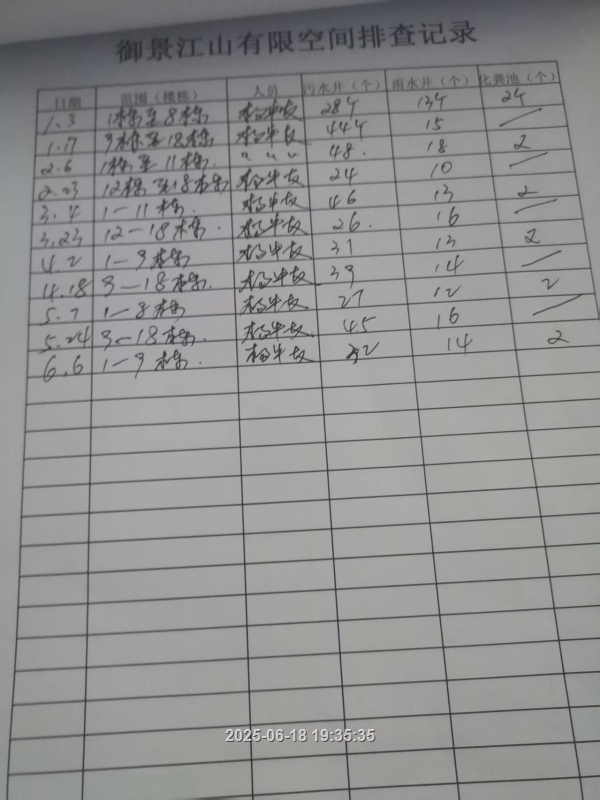 御景江山有限空间排查记录
日期 范围（楼栋） 人员 污水井（个） 雨水井（个） 化粪池（个）
1.3 1栋至8栋 28个 13个 2个
1.17 9栋至18栋 44个 15 /
2.6 1栋至11栋. " " " 48. 18 2
2.23 12栋至18栋 24 10 /
3.4 1-11栋. 46 13 2
3.23 12-18栋. 26. 16 /
4.2 1-9栋 31 13 2
4.18 3-18栋. 39 14 /
5.7 1-8栋 27 12 2
5.24 3-18栋. 45 16 /
6.6 1-9栋. 32 14 2
2025-06-18 19:35:35